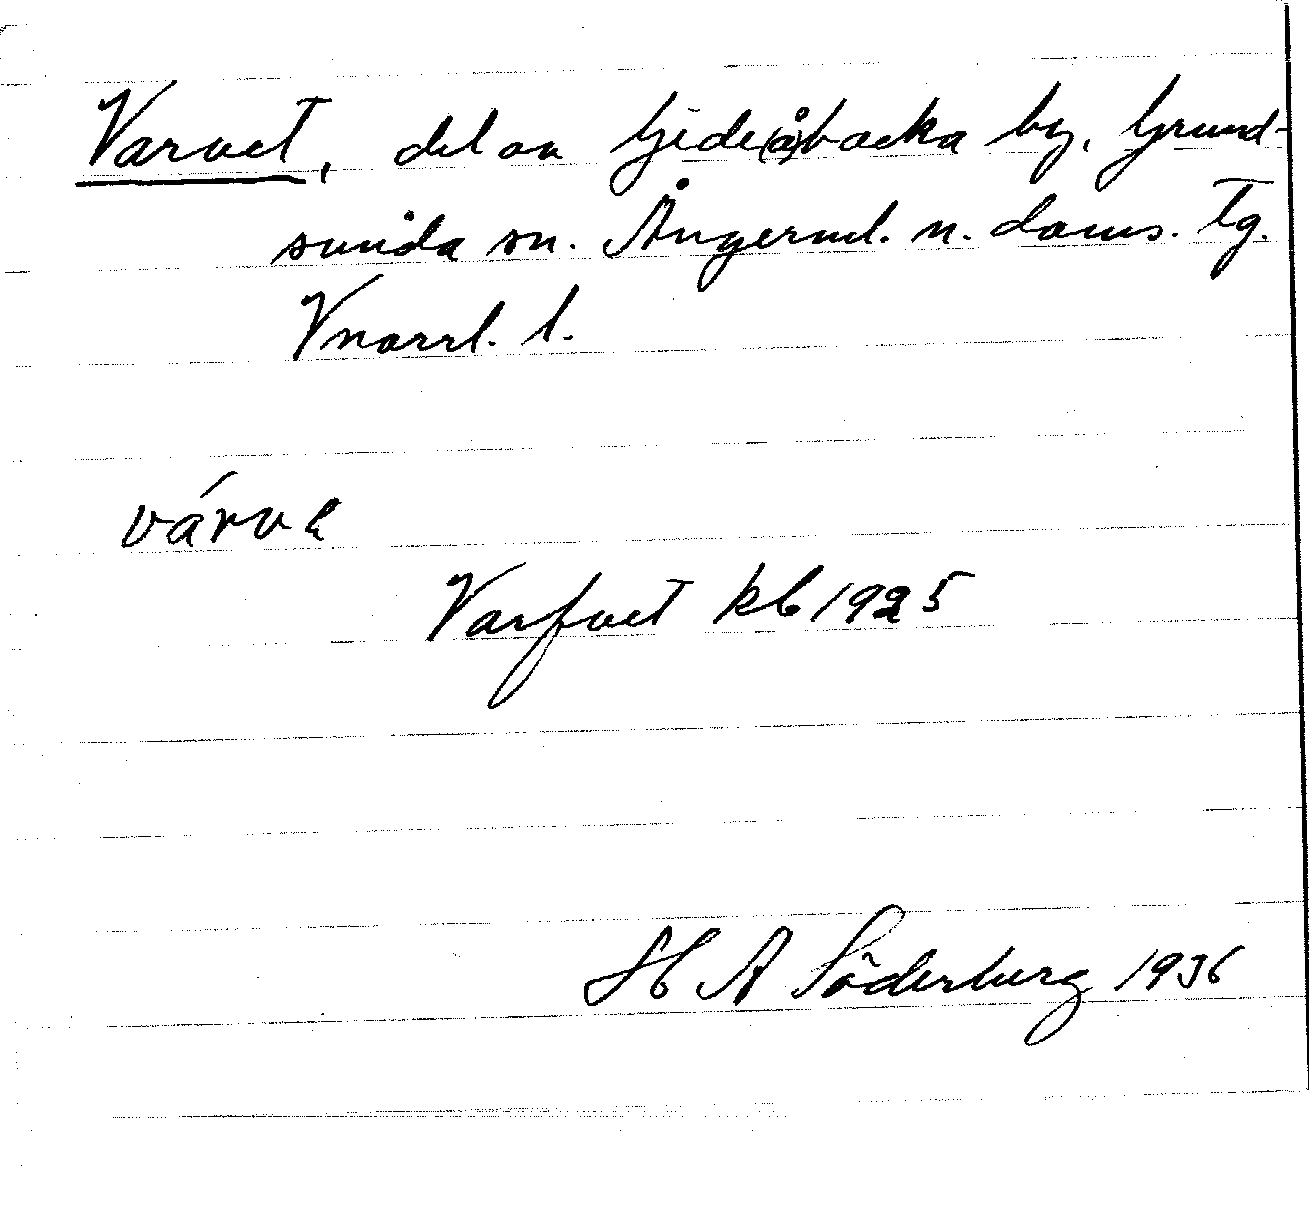 Varvet, del av Gide(å)backa by, Grund-
sunda sn. Ångerml. n. doms. Tg.
Vnorrl. l.
várve
Varfvet kb 1925
H A Söderberg 1936